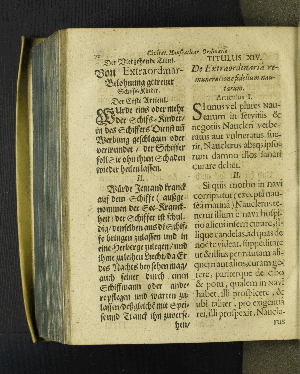 Civitat. Hanseaticar. Ordinatio
Der Vierzehende Titul.
Von Extraordinar-
Belohnung getreuer
Schiffs-Kinder.
Der Erste Articul.
Würde eins oder mehr
der Schifs-Kinder,
in des Schiffers Dienst uñ
Werbung geschlagen oder
verwundet / der Schiffer
soll sie ohn ihren Schaden
wieder heilen lassen.
II.
Würde Jemand kranck
auf dem Schiffe (außge-
nommen der See-Kranck-
heit) der Schiffer ist schul-
dig / denselben aus dē Schif-
fe bringen zu lassen und in
eine Herberge zu legen / und
ihme zu leihen Liecht / da Er
des Nachts bey sehen mag /
auch seiner durch einen
Schiffmann oder ande-
re pflegen und warten zu
lassen / deßgleichē mit Spei-
se und Tranck ihn zuverse-
hen /
TITULUS XIV.
De Extraordinaria re-
muneratione fidelium nau-
tarum.
Articulus I.
SI unus vel plures Nau-
tarum in servitiis &
negotiis Naucleri verbe-
ratus aut vulneratus fue-
rit, Nauclerus absq; ipso-
rum damno illos sanari
curare debet.
II.
Si quis morbo in navi
corripiatur (excepta nau-
sea marina) Nauclerus te-
netur illum è navi hospi-
tio alicui inferri curare, il-
lique candelas, ad quas de
nocte videat, suppeditare
ut & illius per nautam ali-
quem aut alios curam ge-
rere, pariterque de cibo
& potu, qualem in navi
habet, illi prospicere, &
ubi taliter, pro exigentia
rei, illi prospexit, Naucle-
rus